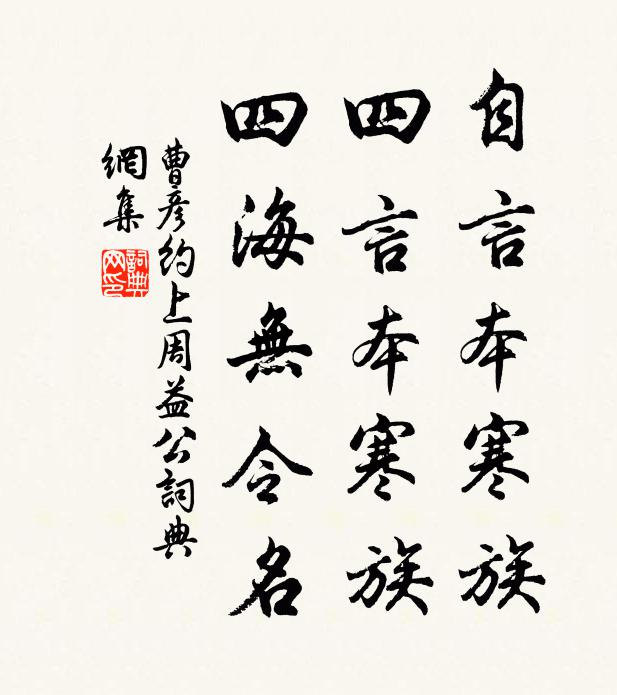 自言本寒族
四言本寒族
四海無令名
曹彦約上周益公詞典
網集
詞典
网印